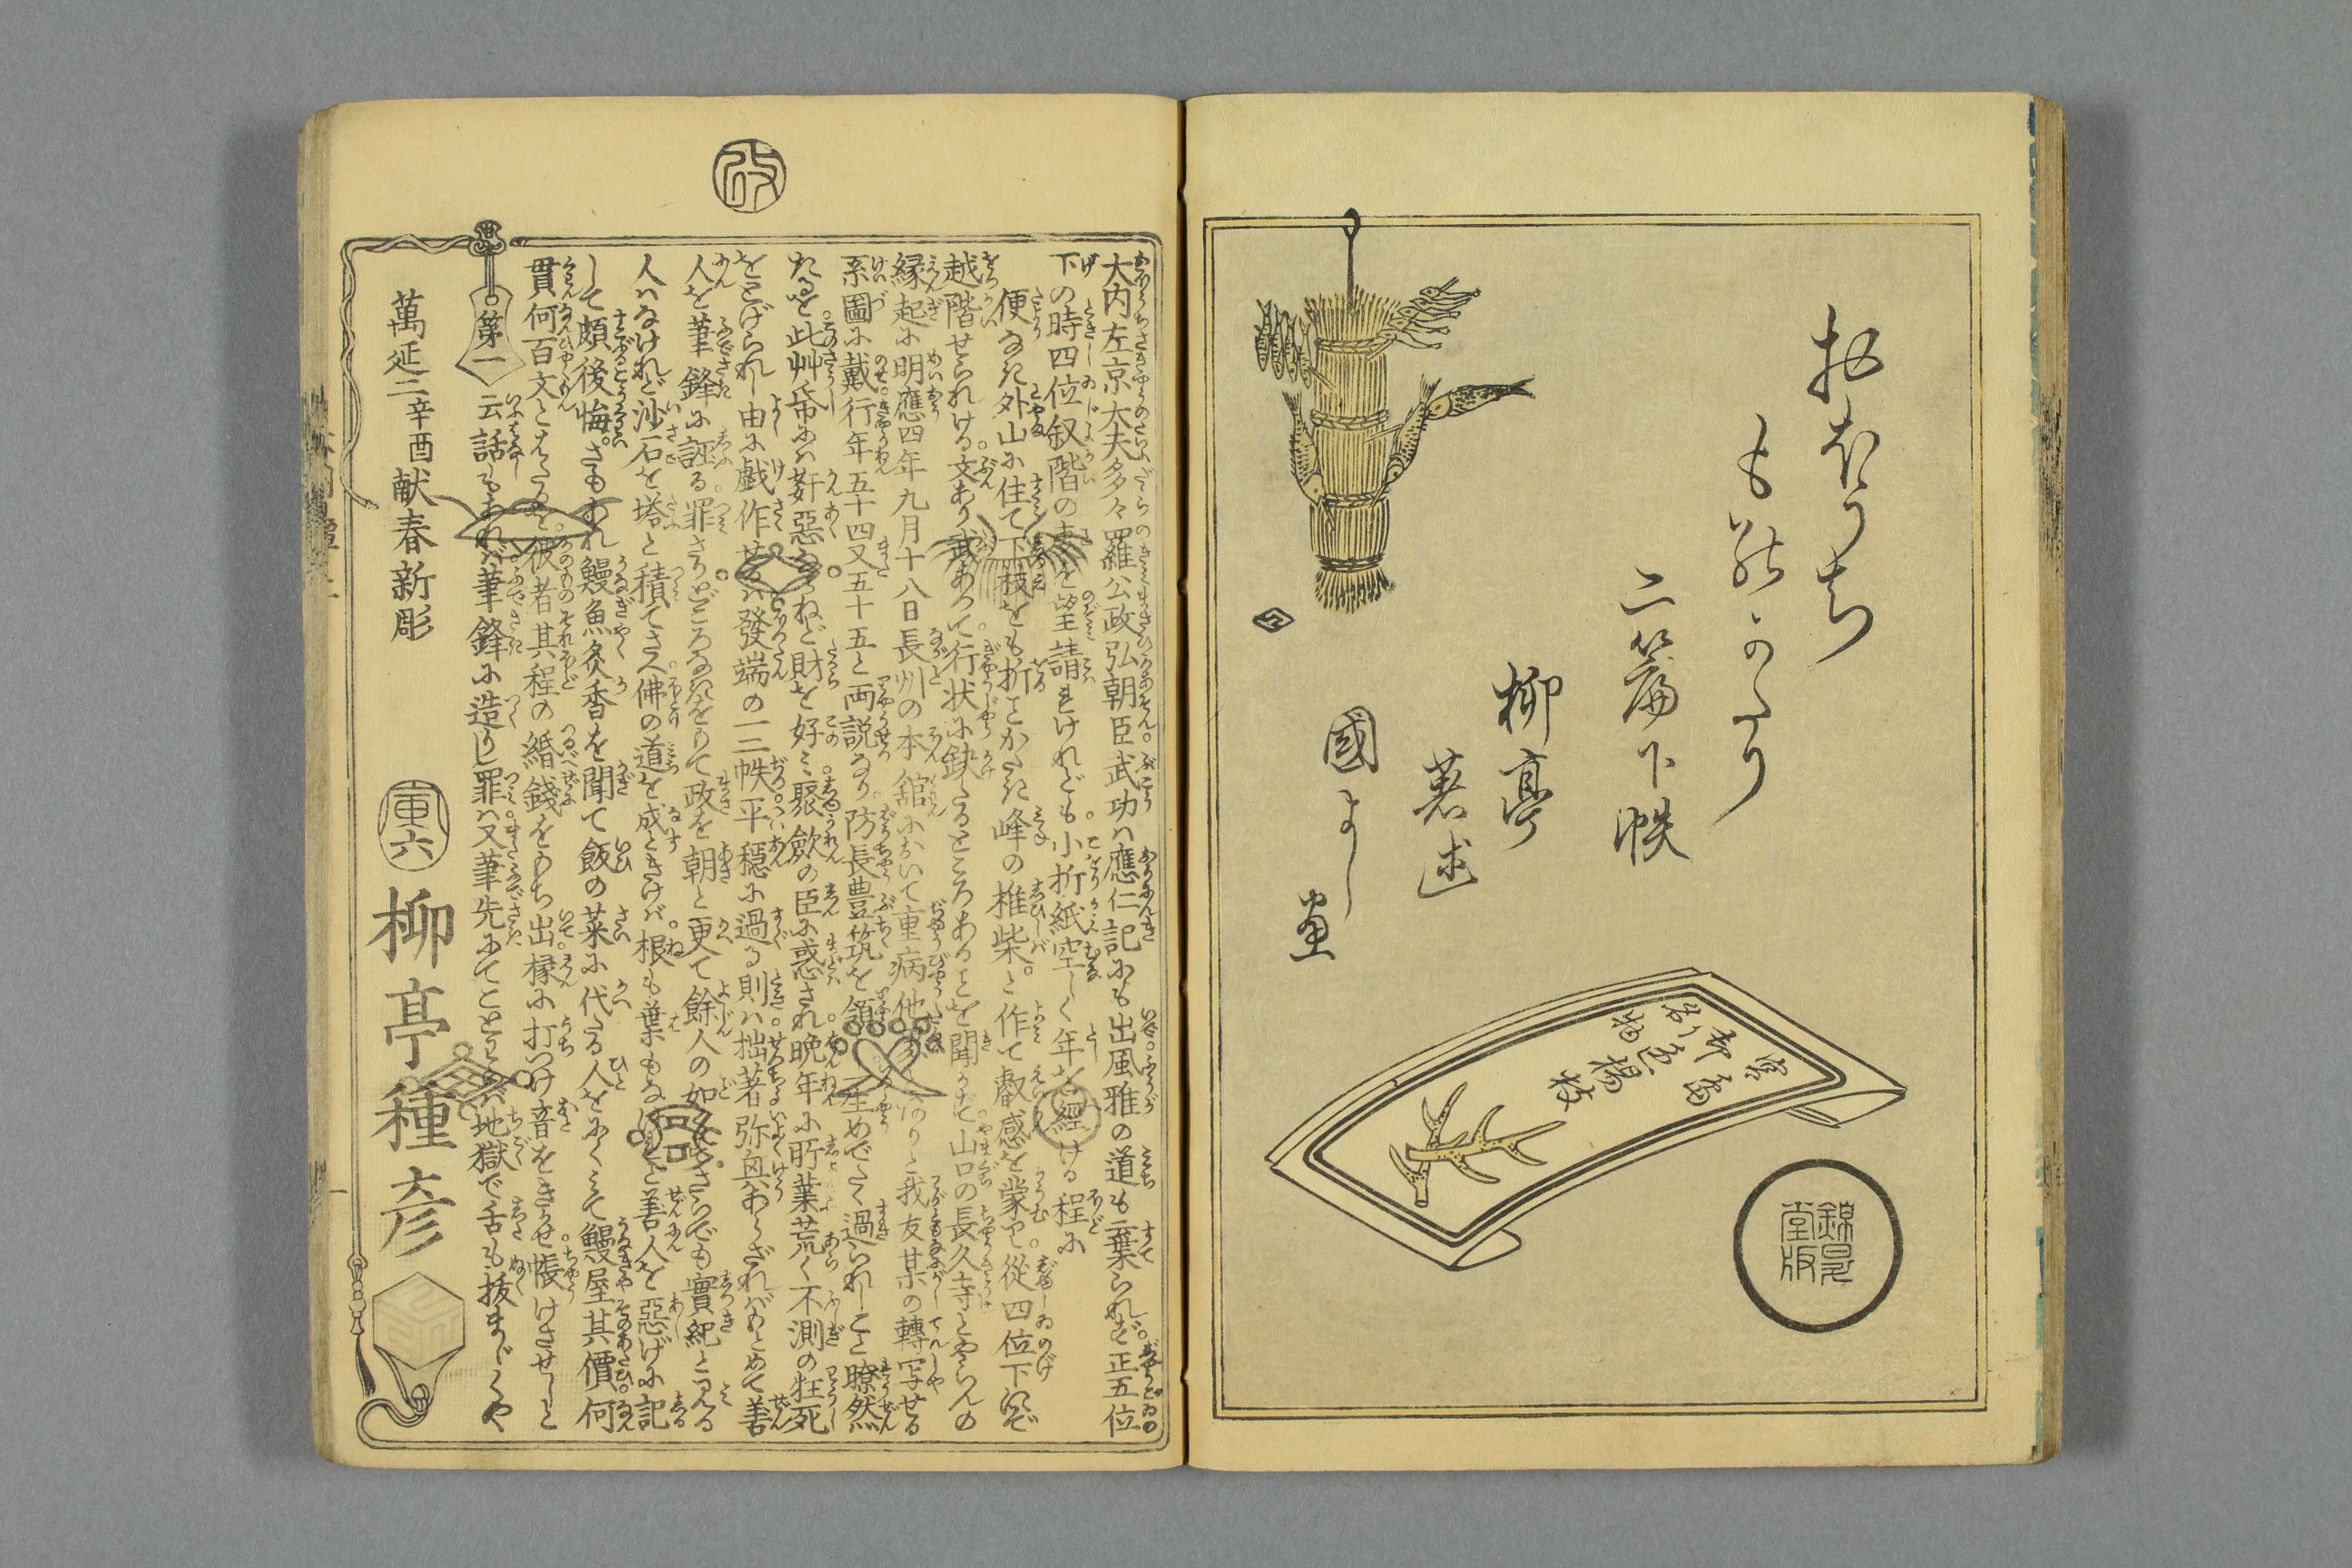 おほうち
ものかたり
二篇下帙
柳亭
著述
國よし
画
錦昇
堂版
改
大内左京大夫多々羅公政弘朝臣武功ハ應仁記にも出風雅の道も棄られず正五位
下の時四位叙階の事を望請まけれども小折紙空しく年を經ける程に
便なき外山に住て下枝をも折ことかたき峰の椎柴と作て叡感を蒙り從四位下にぞ
越階せられける文あり武ありて行状に缺たるところあることを聞かで山口の長久寺とやらんの
縁起に明應四年九月十八日長州の本舘において重病他
我友某の轉写せる
系圖に戴行年五十四又五十五と両説なり防長豊筑を領
一生めでたく過られしこと瞭然
たるを此艸帋にハ奸惡ならねど財を好ミ聚歛の臣に惑され晩年に所業荒く不測の狂死
をとげられし由に戯作せるハ發端の一二帙平穏に過る則ハ拙著弥興あらざれバもとめて善
人を筆鋒に誣る罪さりどころなきをもて政を朝と更て餘人の如く
さらでも實紀と見る
人ハなけれど沙石を塔と積てさへ佛の道を成ときけバ根も葉もなきこと善人を惡げに記
して頗後悔さもあれ鰻魚灸香を聞て飯の菜に代たる人をにくミて鰻屋其價何
貫何百文とはたるを彼者其程の緡錢をもち出椽に打つけ音をきかせ帳けさせしと
第一
云話もあれバ筆鋒に造りし罪ハ又筆先にてことわらバ地獄で舌も抜まじくや
萬延二辛酉献春新彫
柳亭種彦